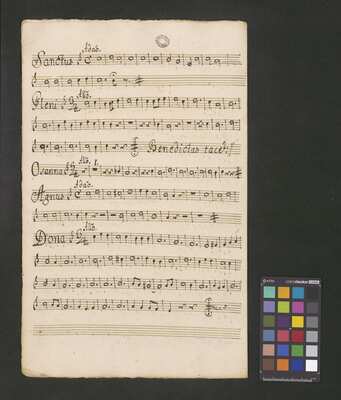 Adag.
Sanctus
All.
Pleni
Benedictus tacet
All.
Osanna
Adag.
Agnus
All.
Dona